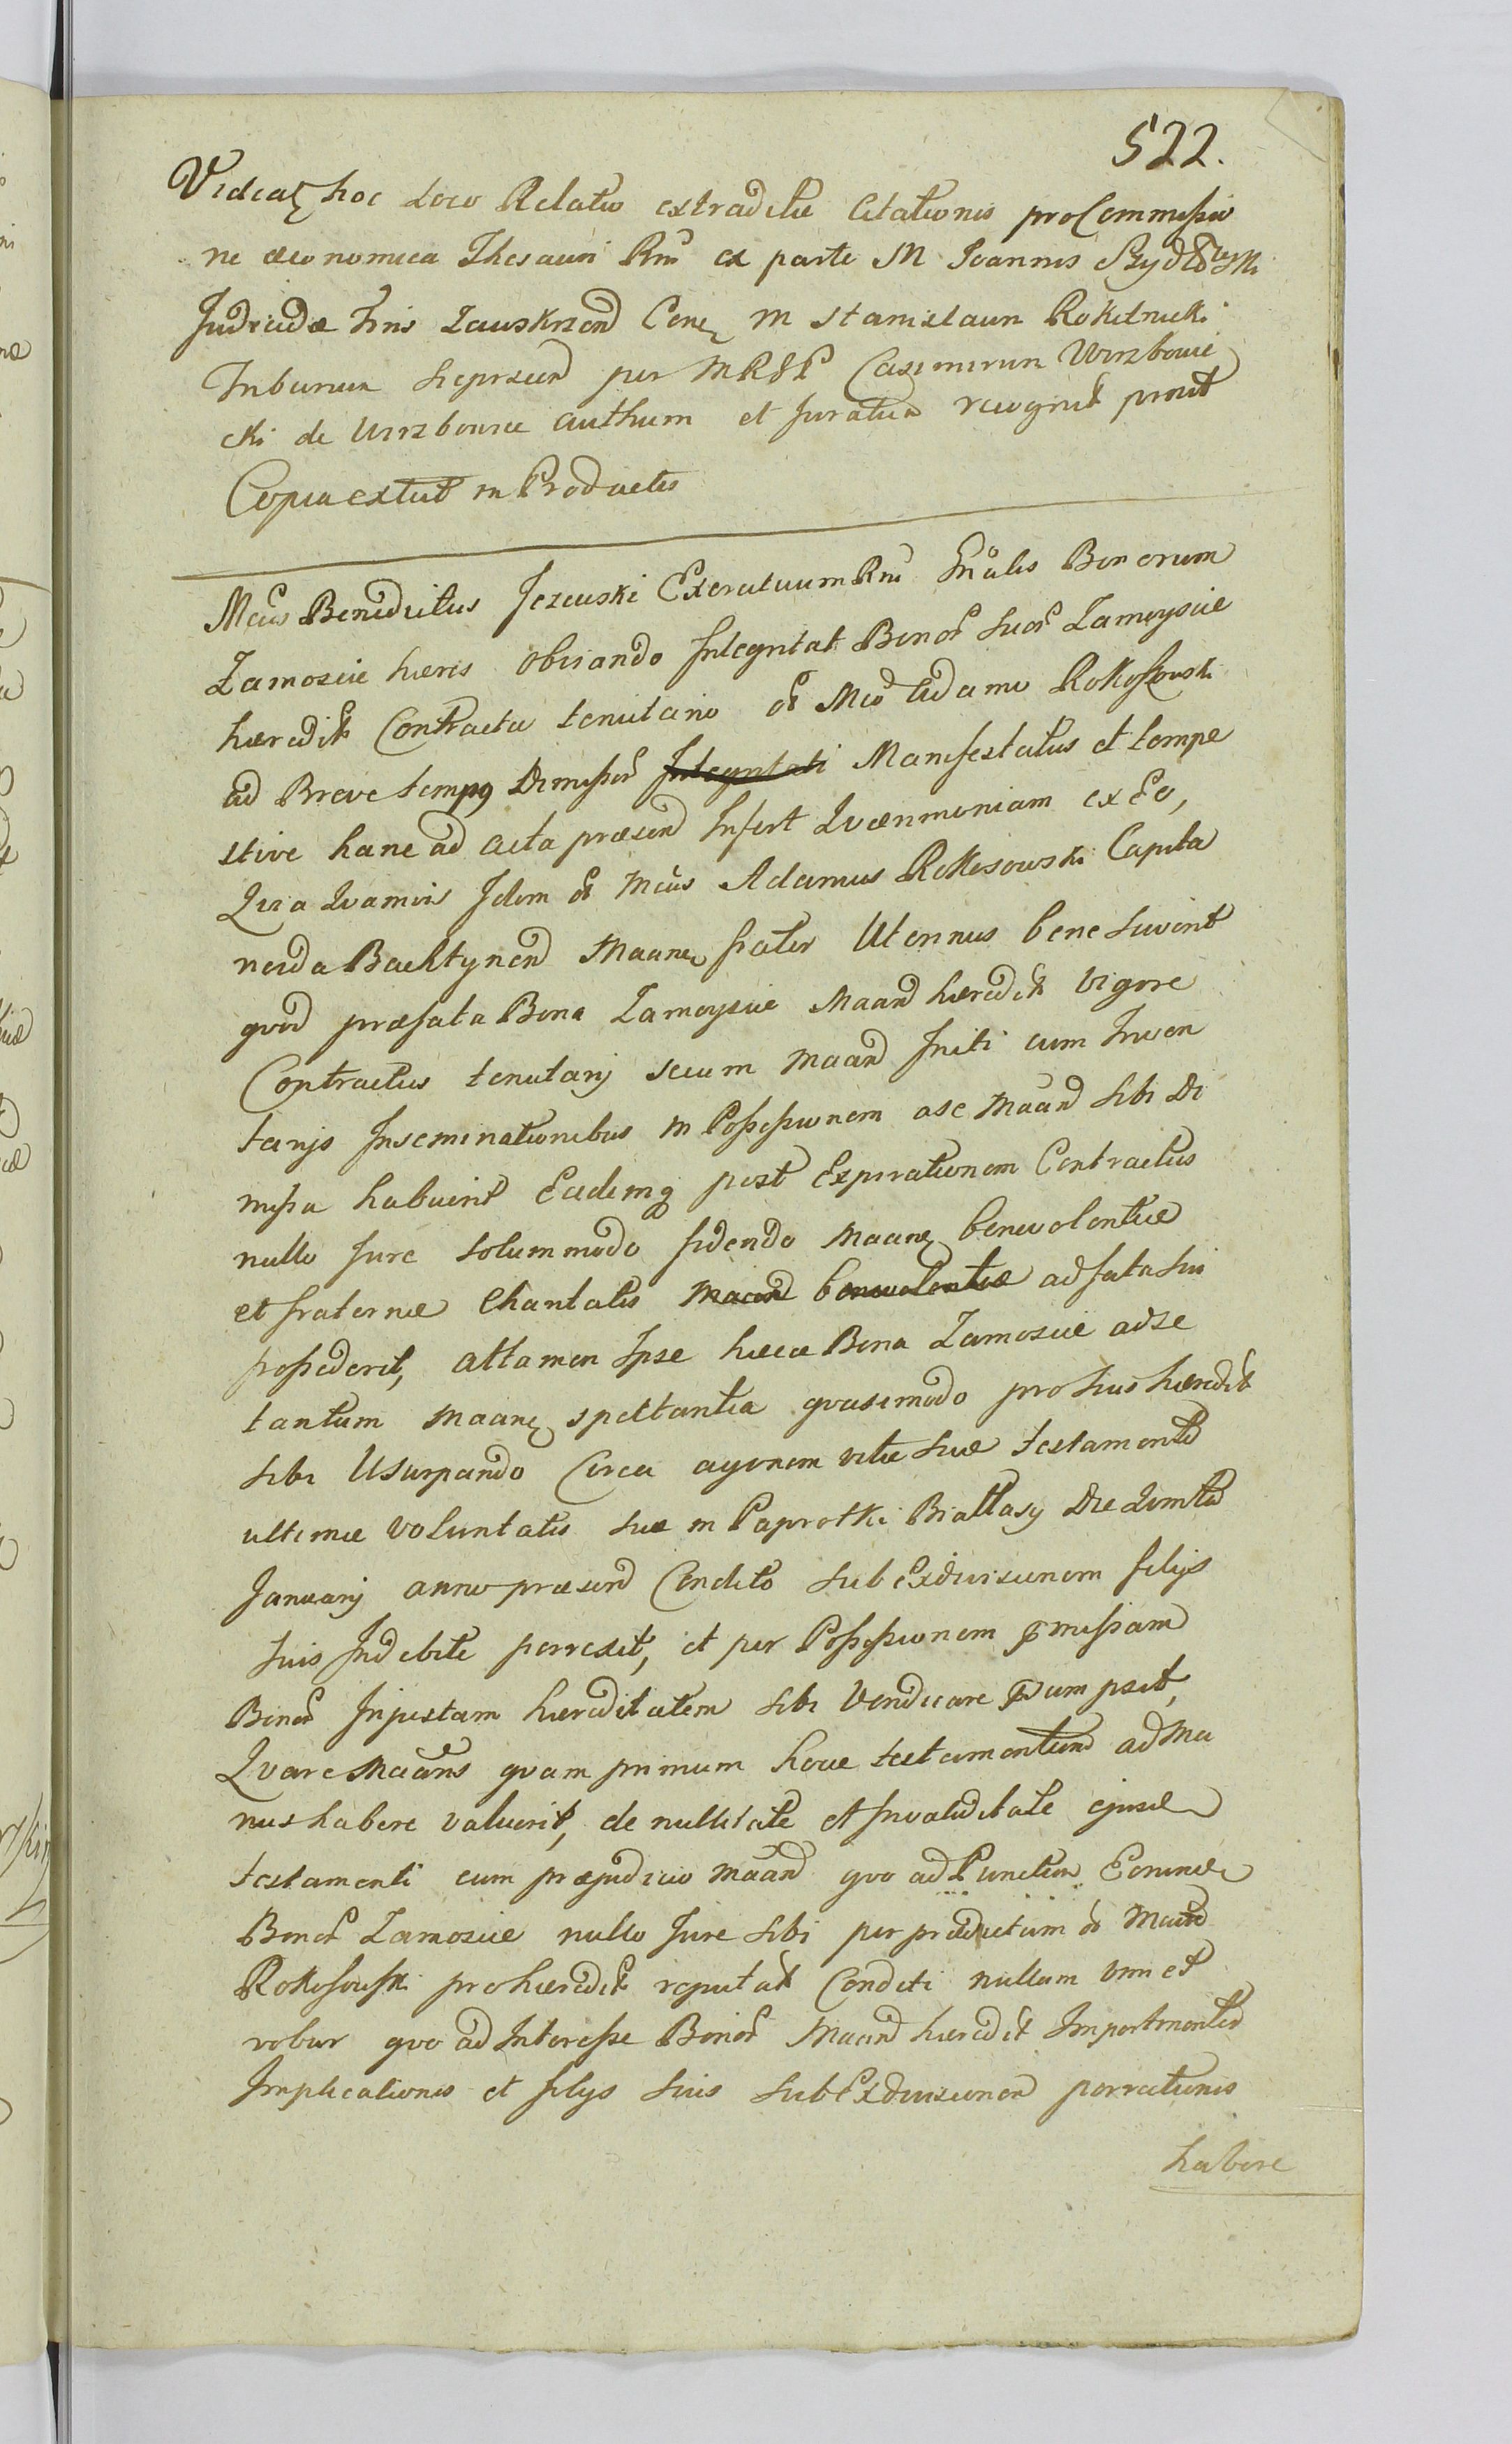 522.
Videatz hoc loco Relatio extraditæ Citationis pro Commissio
ne œconomica Thesauri Rni ex parte M Joannis Szydłowski
Judicidæ Tris Zauskrzend Cone M Stanislaum Rokitnicki
Tribunum per MRSP Casimirum Wirzbowie
cki de Wirzbowice authum et Juratum recognit prout
Copia extat in Productis
Mcus Benedictus Jezewski Exercituum Rni Gnalis Bonorum
Zamoscie hæres obviando Integritat Bonor suor Zamoyscie
hæredit Contractu tenutario ol Mco Adamo Rokossowski
ad Breve tempus Dimissor Integritati Manifestatus et tempe
stive hanc ad acta præsend Infert Quærimoniam ex Eo,
Quia Quamvis Idem ol Mcus Adamus Rokosowski Capita
neida Bachtynend Maane frater Uterinus bene sciverit
quod præfata Bona Zamoyscie Maand hæredit Vigore
Contractus tenutarij secum Maand Initi cum Inven
tarijs Inseminationibus in Possessionem a se Maand sibi Di
missa habuerit Eademq post Expirationem Contractus
nullo Jure solummodo fidendo Maane benevolentiæ
et fraternæ Charitatis Maand benevolentiæ ad fata sui
possederit, attamen Ipse hæcce Bona Zamoscie ad se
tantum Maane spectantia quasimodo pro suis hæredit
sibi Usurpando Circa agonem vitæ suæ testamento
ultimæ Voluntatis suæ in Paprotki Biallasy Die Quinta
Januarij anno præsend Condito sub Exdivisionem filijs
suis Indebite perrexit, et per Possessionem præmissam
Bonor Injustam hæreditatem sibi Vendicare præsumpsit,
Quare Maans quam primum hocce testamentum ad Ma
nus habere valuerit, de nullitate et Invaliditate ejusd
testamenti cum præjudicio Maand quo ad Punctum Eorund
Bonor Zamoscie nullo Jure sibi per prædictum ol Mcum
Rokosowski pro hæredit reputat Conditi nullam vim et
robur quo ad Interesse Bonor Maand hæredit Impertinenter
Implicationis et filijs suis sub Exdivisionem perrectionis
habere